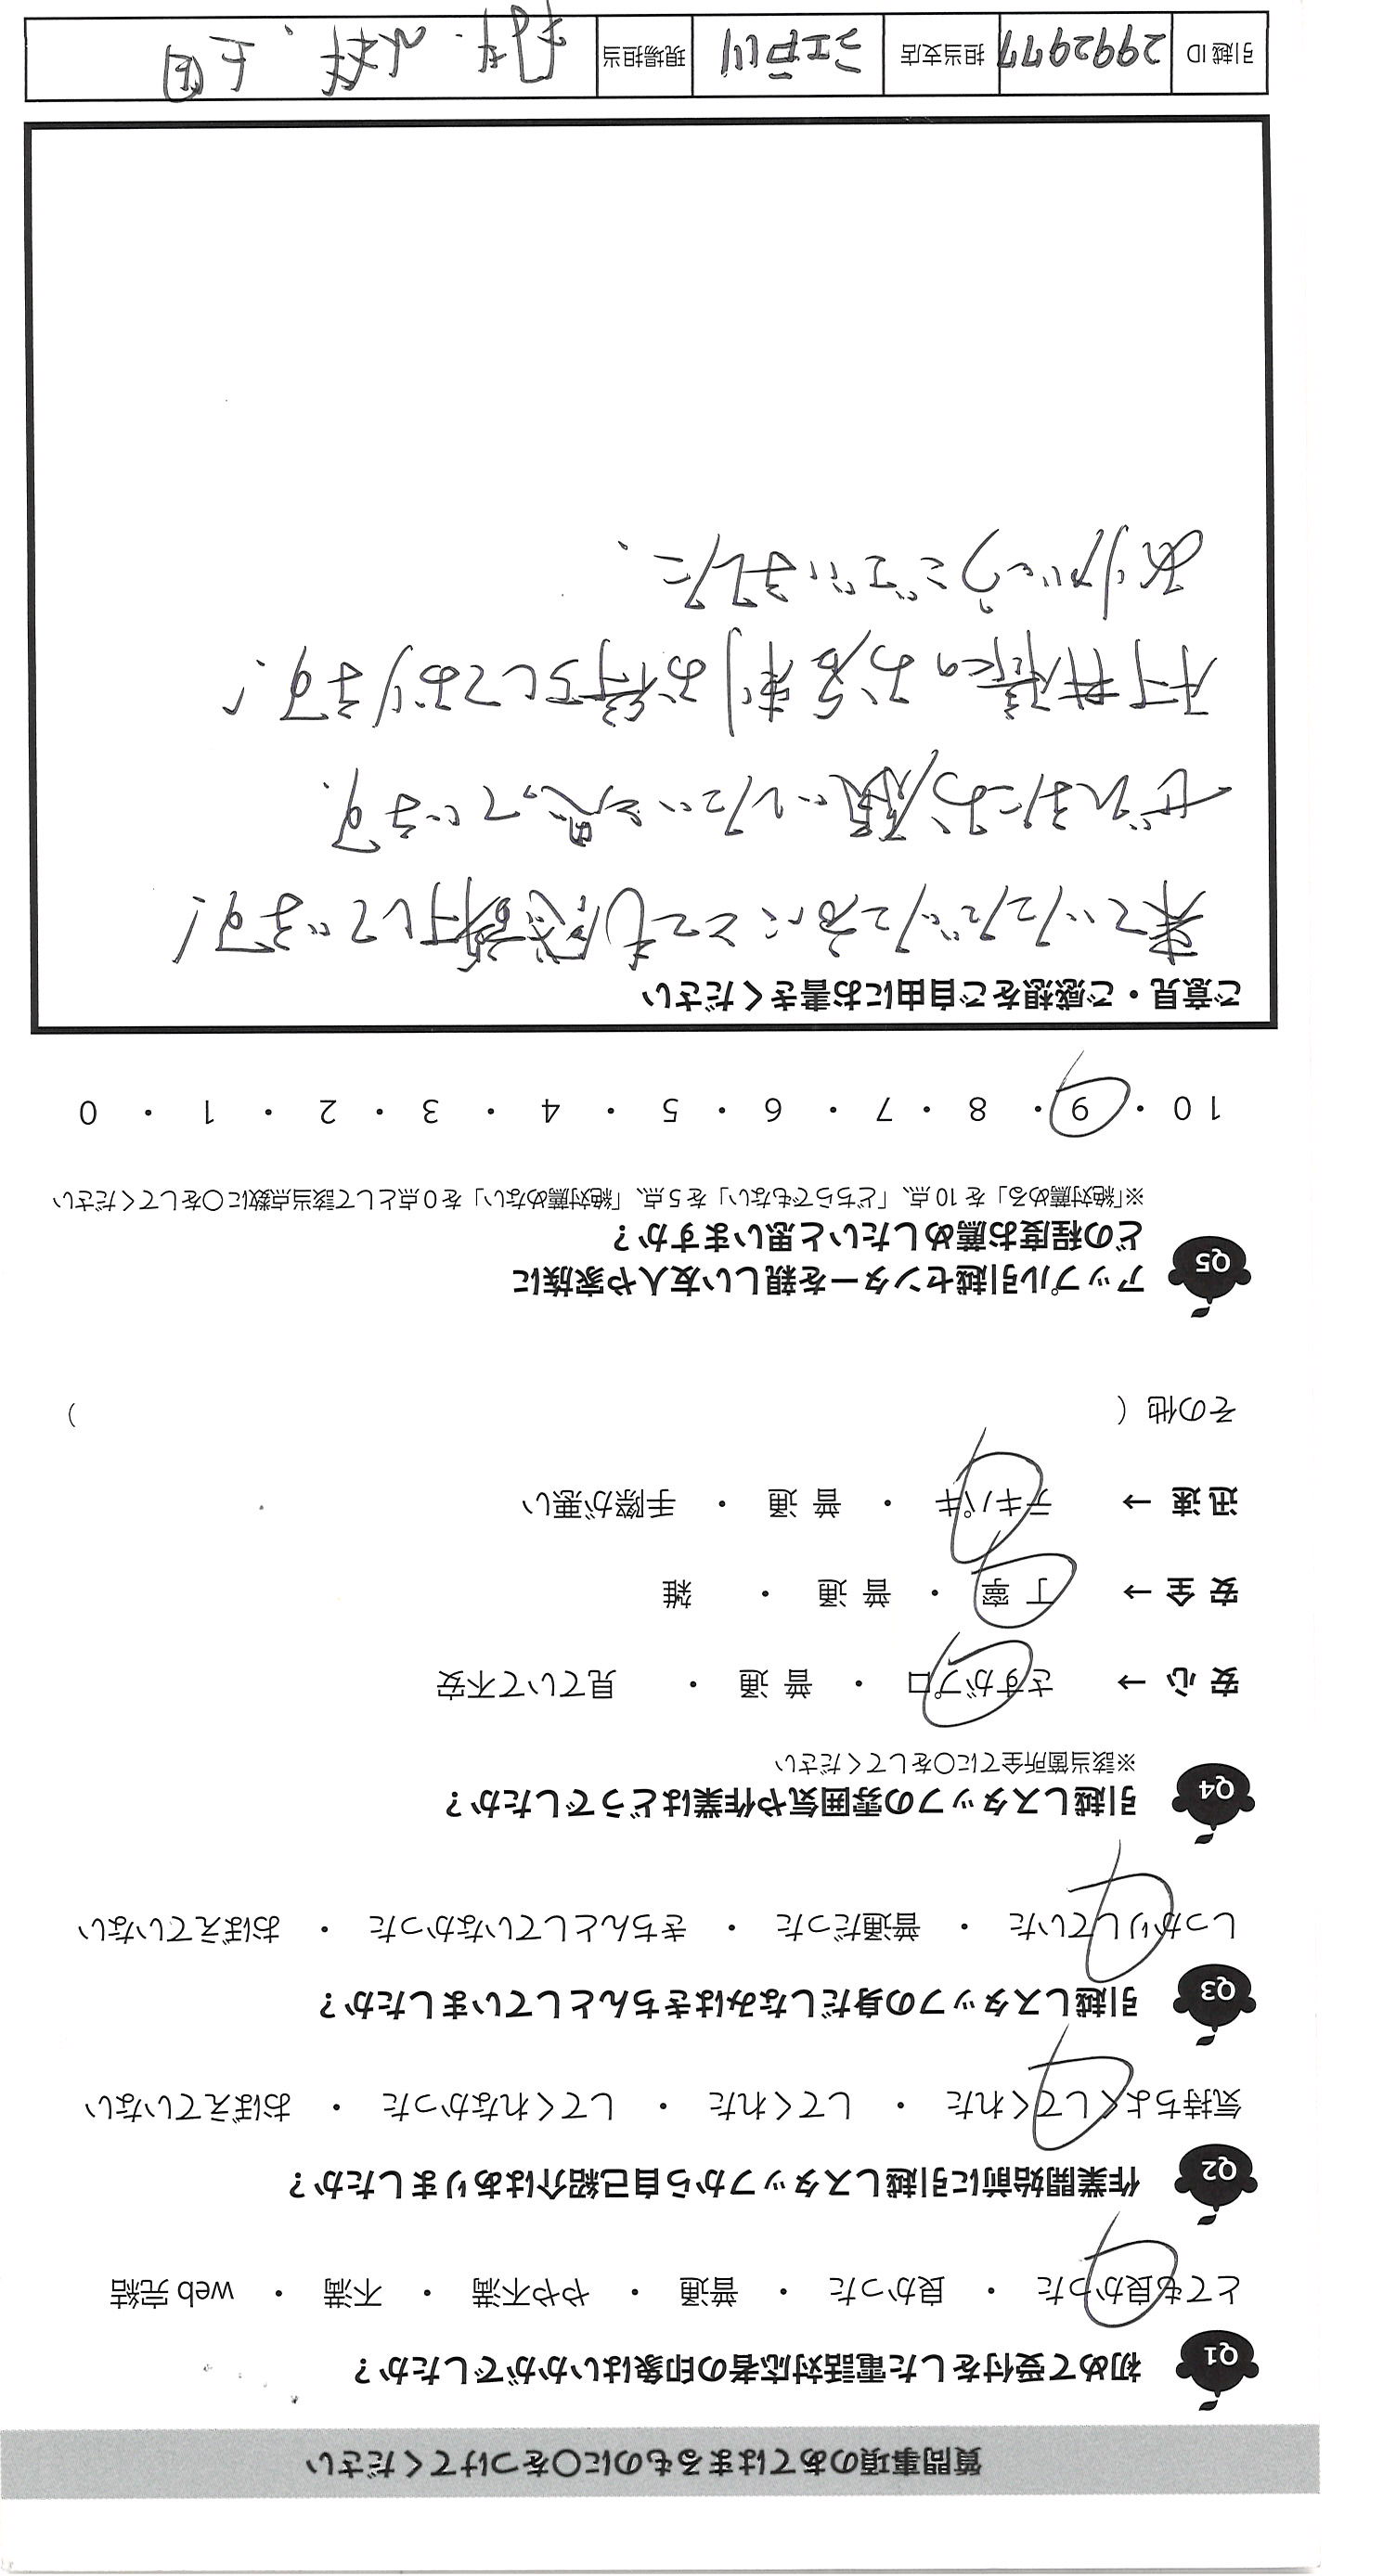 質問事項のあてはまるものに○をつけてください
Q1 初めて受付をした電話対応者の印象はいかがでしたか？
とても良かった ・ 良かった ・ 普通 ・ やや不満 ・ 不満 ・ web 完結
Q2 作業開始前に引越しスタッフから自己紹介はありましたか？
気持ちよくしてくれた ・ してくれた ・ してくれなかった ・ おぼえていない
Q3 引越しスタッフの身だしなみはきちんとしていましたか？
しっかりしていた ・ 普通だった ・ きちんとしていなかった ・ おぼえていない
Q4 引越しスタッフの雰囲気や作業はどうでしたか？
※該当箇所全てに○をしてください
安 心 → さすがプロ ・ 普 通 ・ 見ていて不安
安 全 → 丁 寧 ・ 普 通 ・ 雑
迅 速 → テキパキ ・ 普 通 ・ 手際が悪い
その他（ ）
Q5 アップル引越センターを親しい友人や家族に
どの程度お薦めしたいと思いますか？
※「絶対薦める」を 10 点、「どちらでもない」を 5 点、「絶対薦めない」を 0 点として該当点数に○をしてください
10 ・ 9 ・ 8 ・ 7 ・ 6 ・ 5 ・ 4 ・ 3 ・ 2 ・ 1 ・ 0
ご意見・ご感想をご自由にお書きください
来ていただいた方にとても感謝しています!
ぜひまたお願いしたいと思っています。
様のお名刺お待ちしております!
ありがとうございました。
引越 ID 2992977 担当支店 江戸川 現場担当 小林